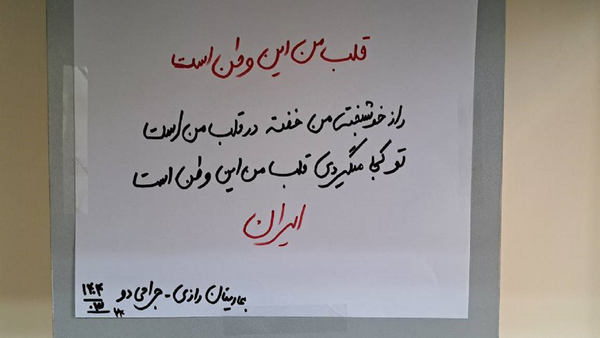 قلب من این وطن است
راز خوشبختی من خفته در قلب من است
تو کجا میگیردی قلب من این وطن است
ایران
بیمارستان رازی - جراحی دو
۱۴۰۴
۰۳